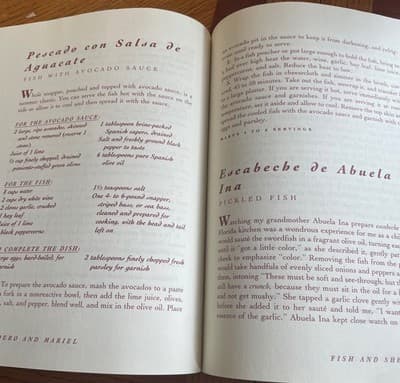 Pescado con Salsa de
Aguacate
FISH WITH AVOCADO SAUCE
Whole snapper, poached and topped with avocado sauce, is a
summer classic. You can serve the fish hot with the sauce on the
side or allow it to cool and then spread it with the sauce.
FOR THE AVOCADO SAUCE:
2 large, ripe avocados, skinned
and stone removed (reserve 1
stone)
Juice of 1 lime
½ cup finely chopped, drained
pimiento-stuffed green olives
1 tablespoon brine-packed
Spanish capers, drained
Salt and freshly ground black
pepper to taste
6 tablespoons pure Spanish
olive oil
FOR THE FISH:
cups water
cups dry white wine
cloves garlic, crushed
bay leaf
Juice of 1 lime
black peppercorns
1½ teaspoons salt
One 4- to 6-pound snapper,
striped bass, or sea bass,
cleaned and prepared for
cooking, with the head and tail
left on
COMPLETE THE DISH:
large eggs, hard-boiled, for
garnish
2 tablespoons finely chopped fresh
parsley for garnish
To prepare the avocado sauce, mash the avocados to a paste
a fork in a nonreactive bowl, then add the lime juice, olives,
salt, and pepper, blend well, and mix in the olive oil. Place
AND MARIEL
avocado pit in the sauce to keep it from darkening, and
until ready to serve.
In a fish poacher or pot large enough to hold the fish, bring
over high heat the water, wine, garlic, bay leaf, lime juice,
peppercorns, and salt. Reduce the heat to low.
Wrap the fish in cheesecloth and simmer in the
45 to 50 minutes. Take out the fish, unwrap it, and
a large platter. If you are serving it hot, serve immediately
avocado sauce and garnishes. If you are serving it
set it aside and allow to cool. Remove the top skin
spread the cooled fish with the avocado sauce and garnish with
eggs and parsley.
MAKES 4 TO 6 SERVINGS
Escabeche de Abuela
Ina
PICKLED FISH
Watching my grandmother Abuela Ina prepare
Florida kitchen was a wondrous experience for me as a
would sauté the swordfish in a fragrant olive oil, turning
until it "got a little color," as she described it, gently
cheek to emphasize "color." Removing the fish from the
would take handfuls of evenly sliced onions and peppers
them, intoning, "These must be soft and see-through, but
still have a crunch, because they must sit in the oil for a
and not get mushy." She tapped a garlic clove gently
before she added it to her sauté and told me, "I want
essence of the garlic." Abuela Ina kept close watch on
FISH AND